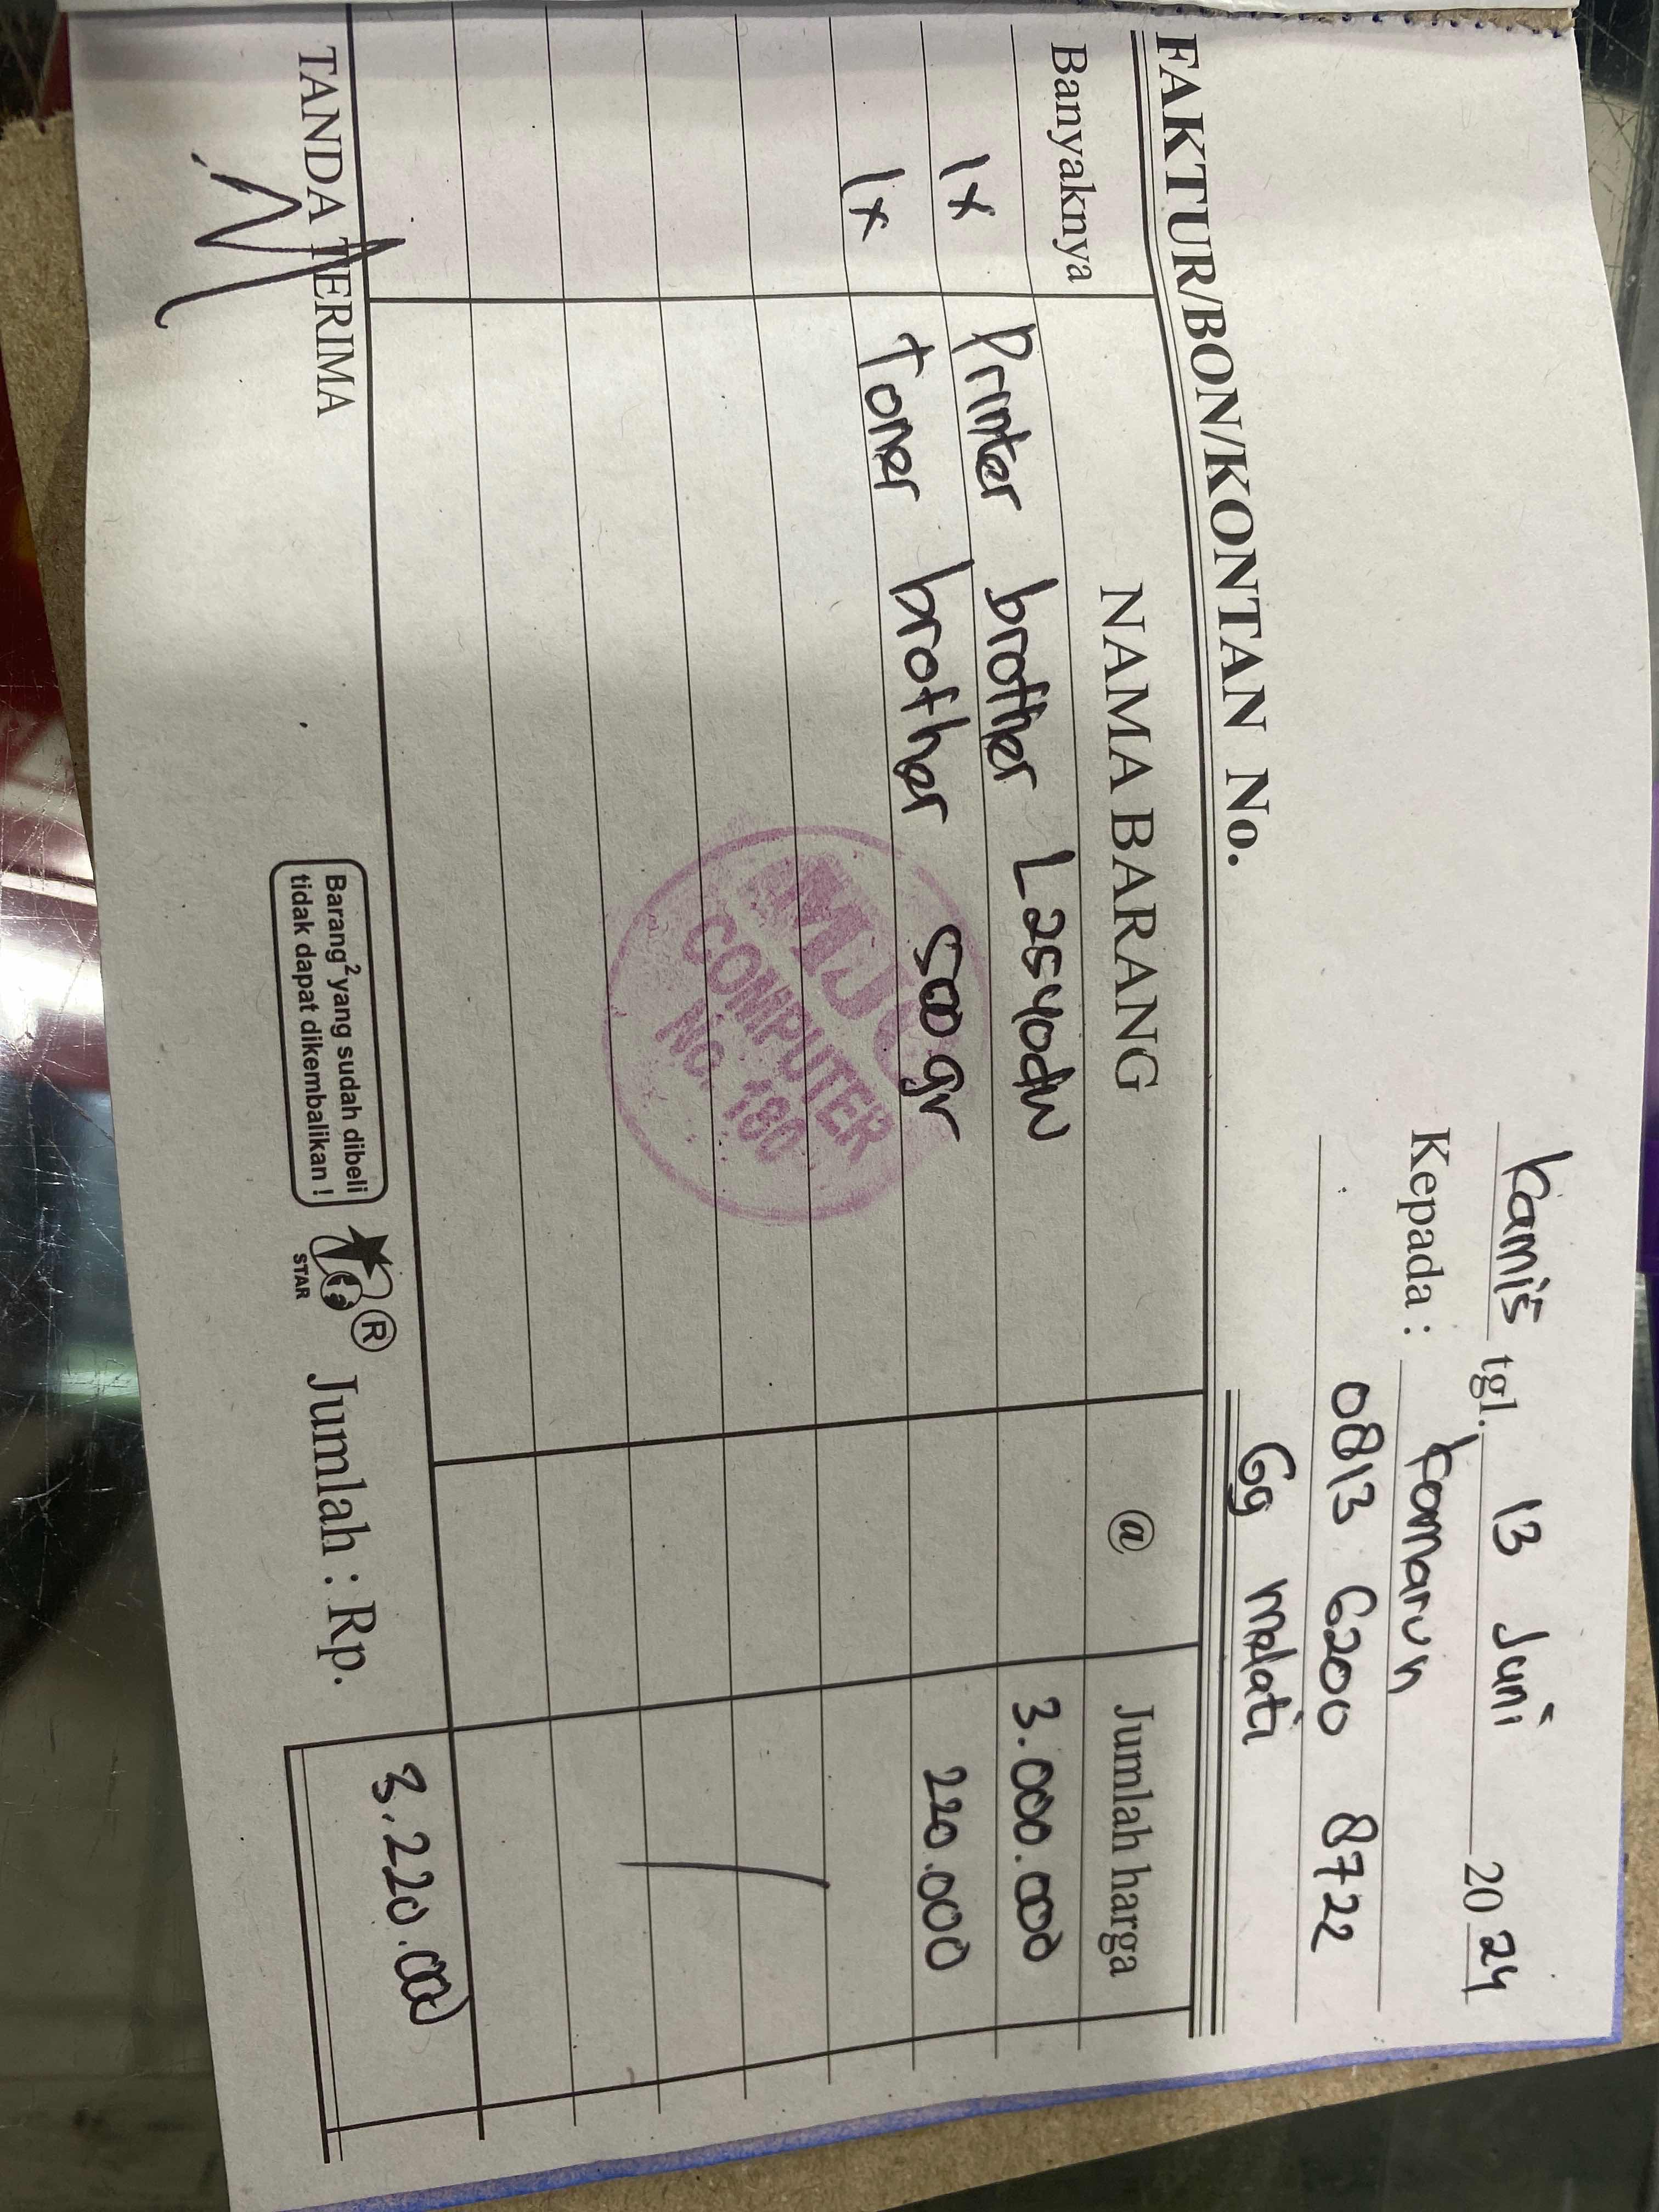 Kamis tgl. 13 Juni 2024
Kepada : Komarun
0813 6200 8722
Gg Melati
FAKTUR/BON/KONTAN No.
Banyaknya NAMA BARANG @ Jumlah harga
1x Printer brother L2540dw 3.000.000
1x Toner brother 500gr 220.000
COMPUTER
No. 180
TANDA TERIMA
Barang² yang sudah dibeli
tidak dapat dikembalikan !
STAR
®
Jumlah : Rp. 3.220.000